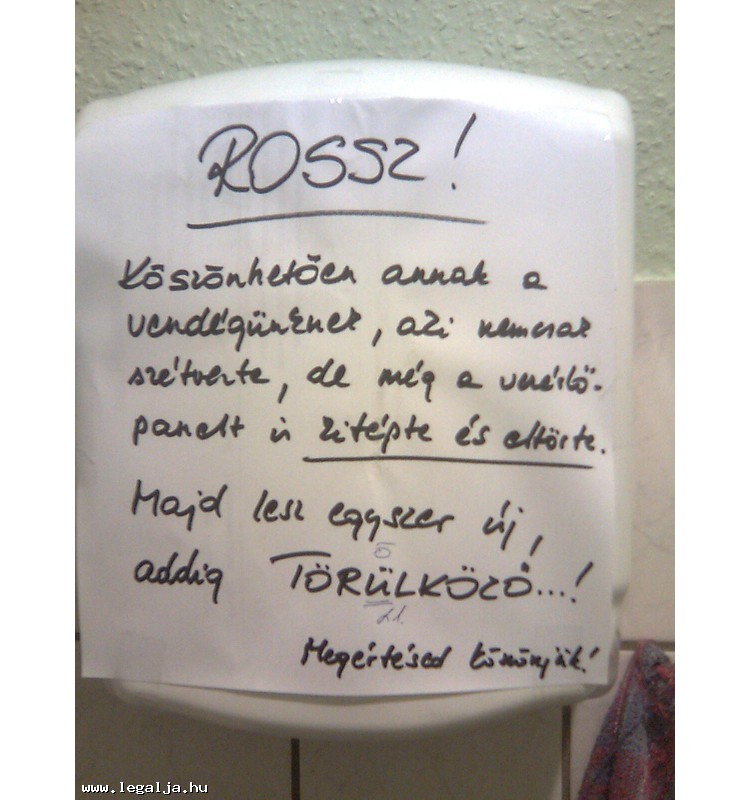 ROSSZ!
Köszönhetően annak a
vendégünknek, aki nemcsak
szétverte, de még a vezérlő-
panelt is kitépte és eltörte.
Majd lesz egyszer új,
ö
addig TÖRÜLKÖZŐ...!
Megértésed köszönjük!
www.legalja.hu